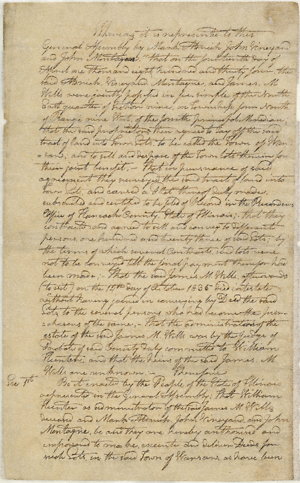 Whereas it is represented to this
General Assembly by Mark Aldrich John Vineyard
and John Montague that on the fourteenth day of
April one thousand eight hundred and thirty four the
said Aldrich, Vineyard, Montague, and James M.
Wells were jointly possessed in fee simple of the North
East quarter of Section nine, in Township four North
of Range nine West of the fourth principal Meridian
that the said proprietors then agreed to lay off the said
tract of land into town lots to be called the Town of War-
saw, and to sell and dispose of the town lots therein for
their joint benefit. That in pursuance of said
agreement they surveyed the said tract of land into
town lots and caused a plat thereof duly made
certified to be filed of Record in the Recorders
Office of Hancock County, State of Illinois; that they
contracted and agreed to sell and convey to different
persons one hundred and seventy three of said lots; by
the terms of which several contracts, said lots were
not to be conveyed till the final payment therefor has
been made. That the said James M. Wells afterwards
(to wit) on the 15th day of October 1835 died intestate
without having joined in conveying by Deed the said
lots to the several persons who had become the pur-
chasers of the same. That the administration of the
estate of the said James M. Wells was by the Judge of
Probate of said County duly committed to William
and that the Heirs of the said James M.
Wells are unknown - Therefore
Sec 1st
Be it enacted by the People of the State of Illinois
represented in the General Assembly, That William
as administrator of the said James M. Wells
deceased and Mark Aldrich, John Vineyard and John
Montague, be and they are hereby authorized and
empowered to make, execute and deliver Deeds for
such lots in the said Town of Warsaw, as have been